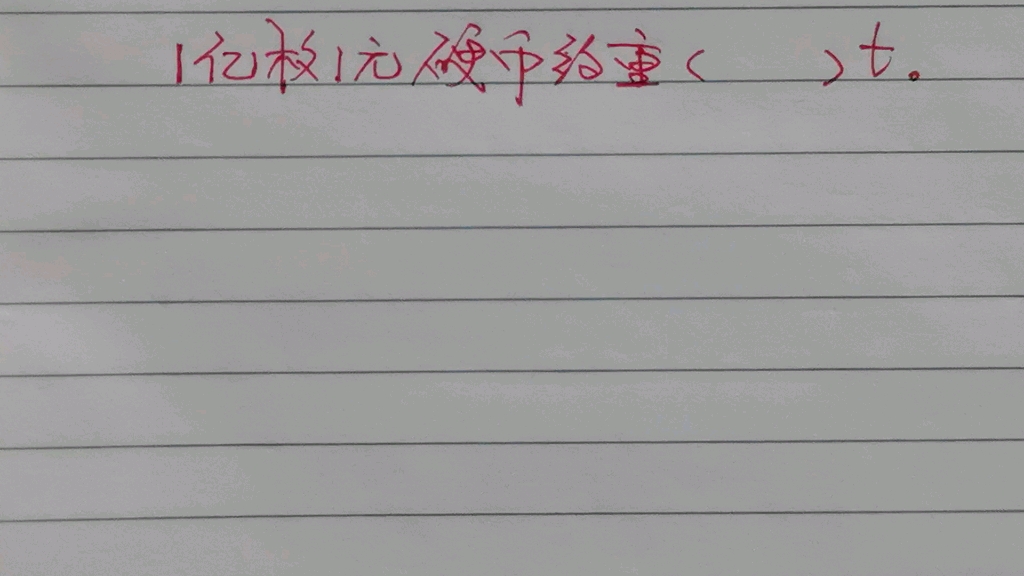 1亿枚1元硬币约重( )t。